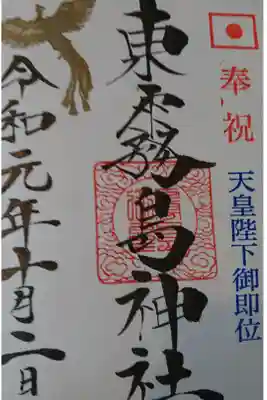 奉祝
天皇陛下御即位
東霧島神社
令和元年十月二日